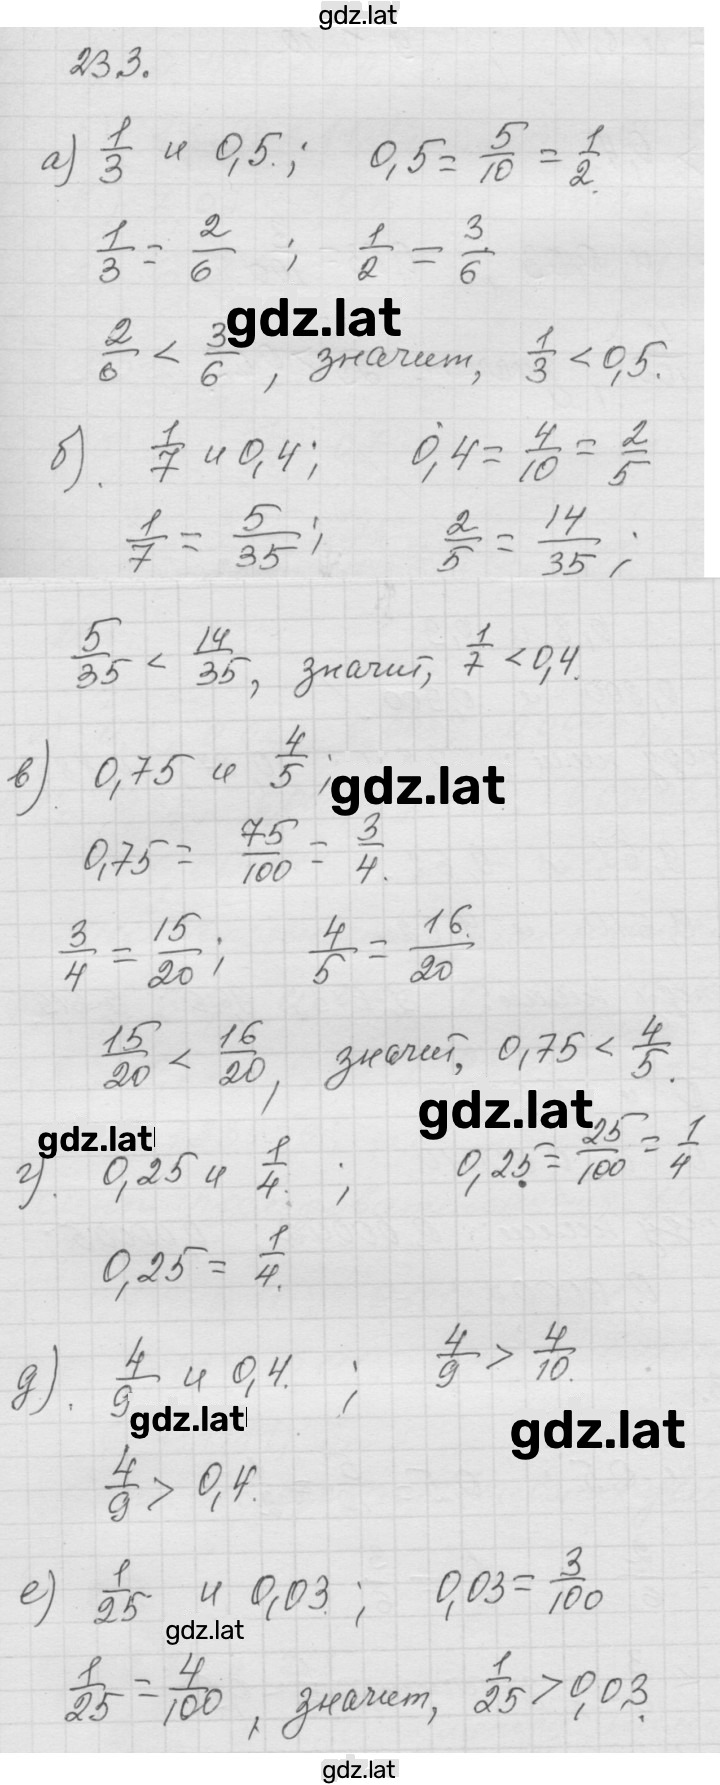 gdz.lat
23.3.
а) 1/3 и 0,5.; 0,5 = 5/10 = 1/2.
1/3 = 2/6 ; 1/2 = 3/6
gdz.lat
2/6 < 3/6, значит, 1/3 < 0,5.
б). 1/7 и 0,4; 0,4 = 4/10 = 2/5
1/7 = 5/35; 2/5 = 14/35;
5/35 < 14/35, значит, 1/7 < 0,4.
в) 0,75 и 4/5;
gdz.lat
0,75 = 75/100 = 3/4.
3/4 = 15/20; 4/5 = 16/20
15/20 < 16/20, значит, 0,75 < 4/5.
gdz.lat
gdz.lat
г). 0,25 и 1/4. ; 0,25 = 25/100 = 1/4
0,25 = 1/4.
д). 4/9 и 0,4. ; 4/9 > 4/10.
gdz.lat
gdz.lat
4/9 > 0,4.
е) 1/25 и 0,03 ; 0,03 = 3/100
gdz.lat
1/25 = 4/100, значит, 1/25 > 0,03.
gdz.lat